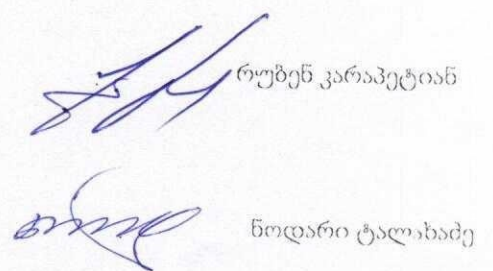 რუბენ კარაპეტიან
ნოდარი ტალახაძე